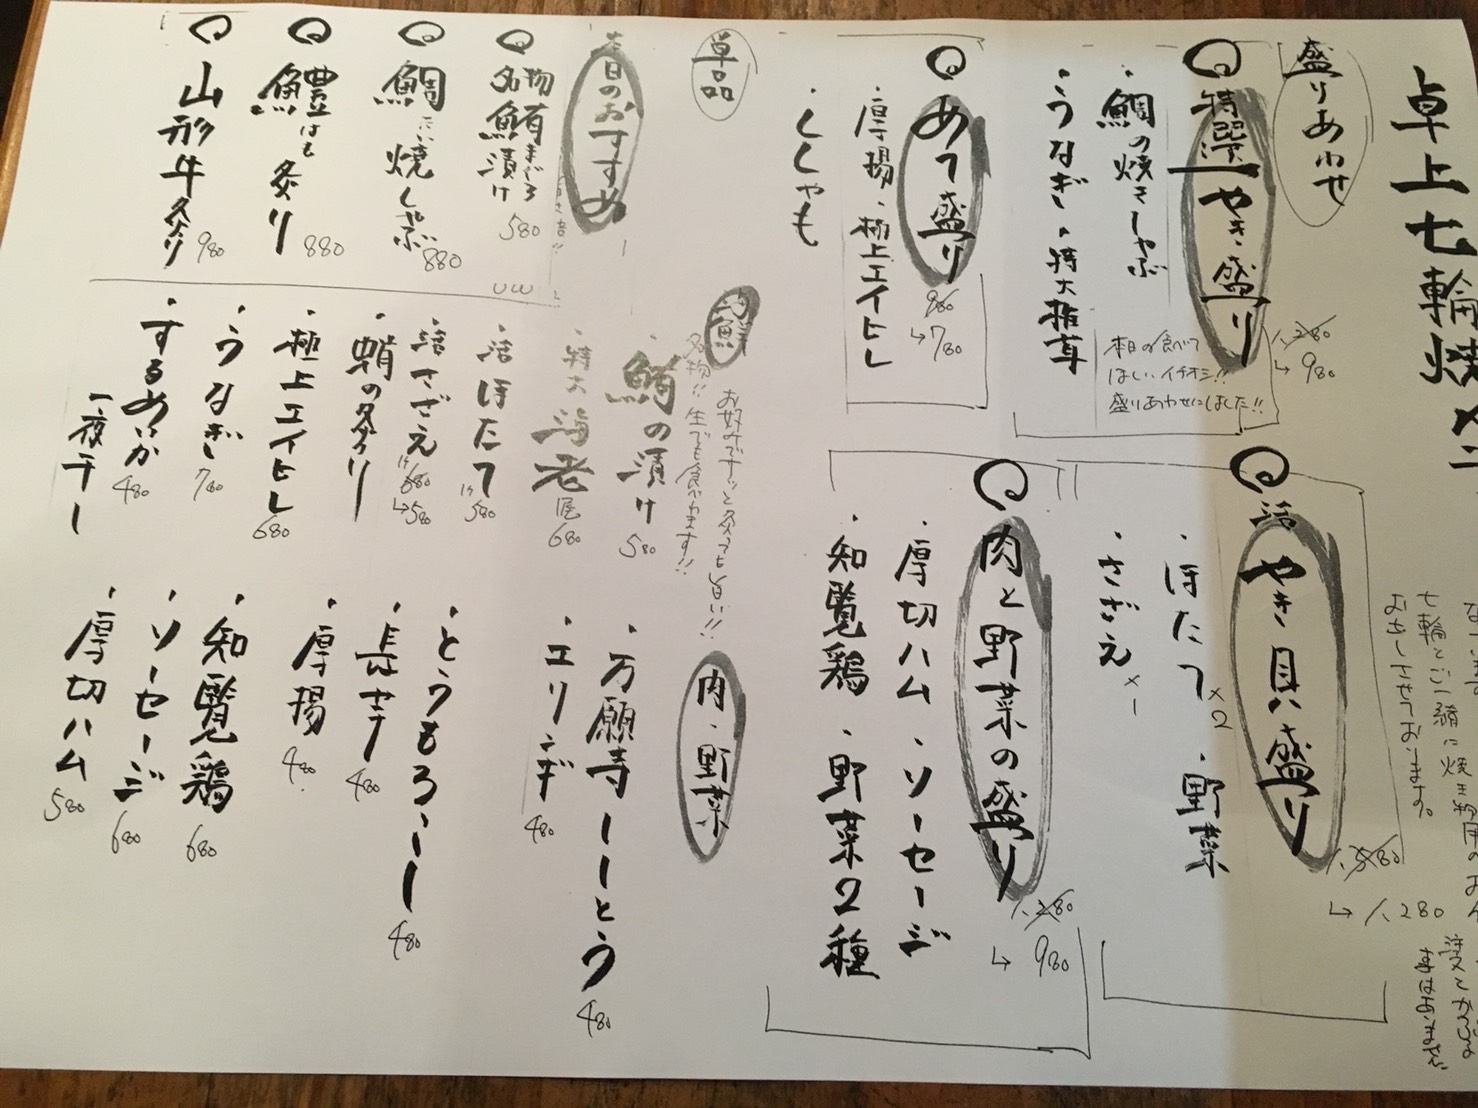 卓上七輪焼
七輪とご一緒に焼き物用の
おきしさせております。
盛りあわせ
特選やき盛り
1,280
↳980
・鯛の焼きしゃぶ
・うなぎ・特大椎茸
本日の食べて
ほしいイチオシ!!
盛りあわせにしました!!
あて盛り
980
↳780
厚揚・極上エイヒレ
・ししゃも
活やき貝盛り
1,580
↳1,280
ほたて×2・野菜
・さざえ×1
肉と野菜の盛り
1,280
↳980
・厚切ハム・ソーセージ
・知覧鶏・野菜2種
単品
本日のおすすめ
名物鮪まぐろ漬け 580
鯛たい焼しゃぶ 880
鱧はも炙り 880
山形牛炙り 980
海鮮
お好みでサッと炙っても旨い!!
名物!!生でも食べれます!!
鮪の漬け 580
・特大海老 1尾 680
・活ほたて 1ケ 580
・活さざえ 1ケ 680 ↳580
蛸の炙り
・極上エイヒレ 680
・うなぎ 780
・するめいか一夜干し 480
肉・野菜
・万願寺とうとう 480
・エリンギ 480
・とうもろこし 480
・長芋 480
・厚揚 480
・知覧鶏 680
・ソーセージ 680
・厚切ハム 580